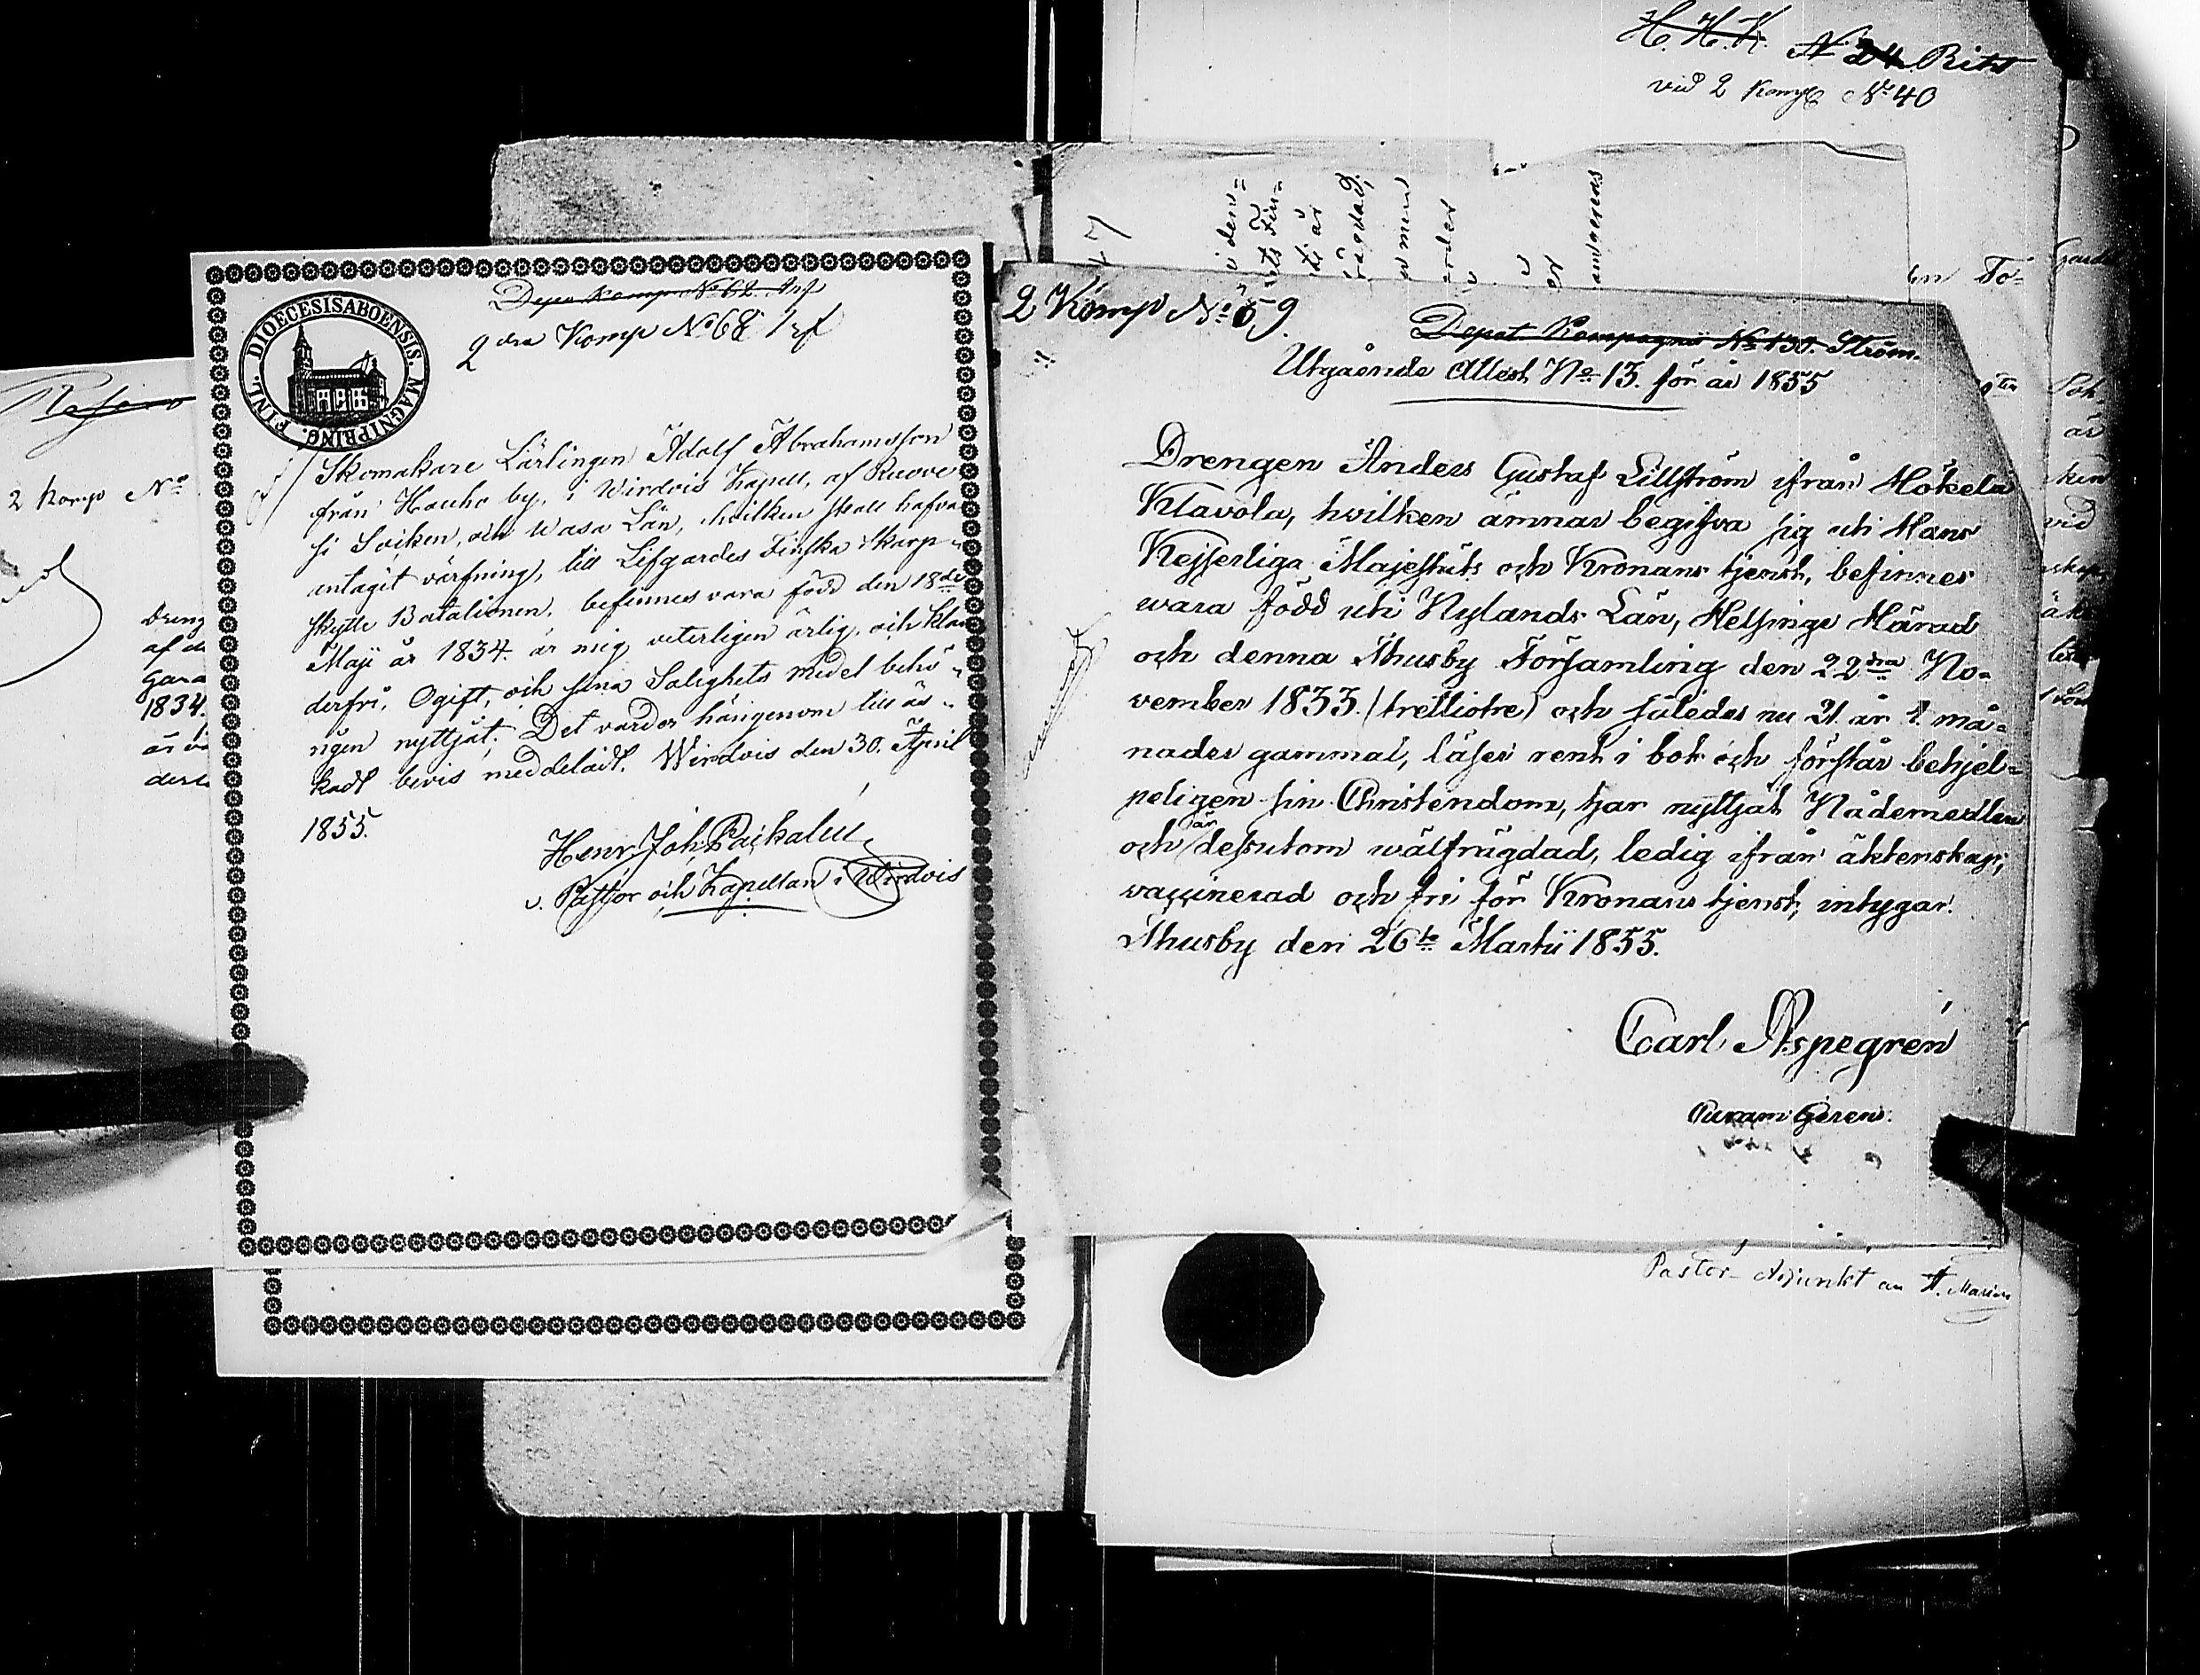 2 Komp No
Dreng
af
Gara
1834.
är
FINL. DIOECESIS ABOENSIS. MAGNI PRINC.
Depo Komp No 62. Arf
2dra Komp No 68 Arf
Skomakare Lärlingen Adolf Abrahamsson
från Hauho by, i Wirdois Kapell, af Ruove
si Socken, och Wasa Län, hvilken skall hafva
intagit värfning, till Lifgardes Finska Skarp-
skytte Batalionen, befinnes vara född den 18de
Maji år 1834. är mig veterligen ärlig, och klan
derfri, Ogift, och sina Salighets medel behö-
rigen nyttjat; Det varder härigenom till äs-
kadt bevis meddeladt. Wirdois den 30. April
1855.
Henr Joh Paikalill
v. Pastor och Kapellan i Wirdois
H. H. K. No 24 Rits
vid 2 Komp No 40
2 Komp No 59.
Depot Kompagnie No 130. Ström.
Utgående Attest No 13. för år 1855
Drengen Anders Gustaf Lillström ifrån Hökelä
Klavola, hwilken ämnar begifva sig uti Hans
Kejserliga Majestäts och Kronans tjenst, befinnes
wara född uti Nylands Län, Helsinge Härad
och denna Thusby Församling den 22dra No-
vember 1833. (trettiotre) och således nu 21 år 4 må-
nader gammal, läser rent i bok och förstår behjel-
peligen sin Christendom, har nyttjat Nådemedlen
och är dessutom wälfrägdad, ledig ifrån äktenskap,
vaccinerad och fri för Kronans tjenst, intygar.
Thusby den 26te Martii 1855.
Carl Aspegrén
Curam Gerens.
Pastor-Adjunkt